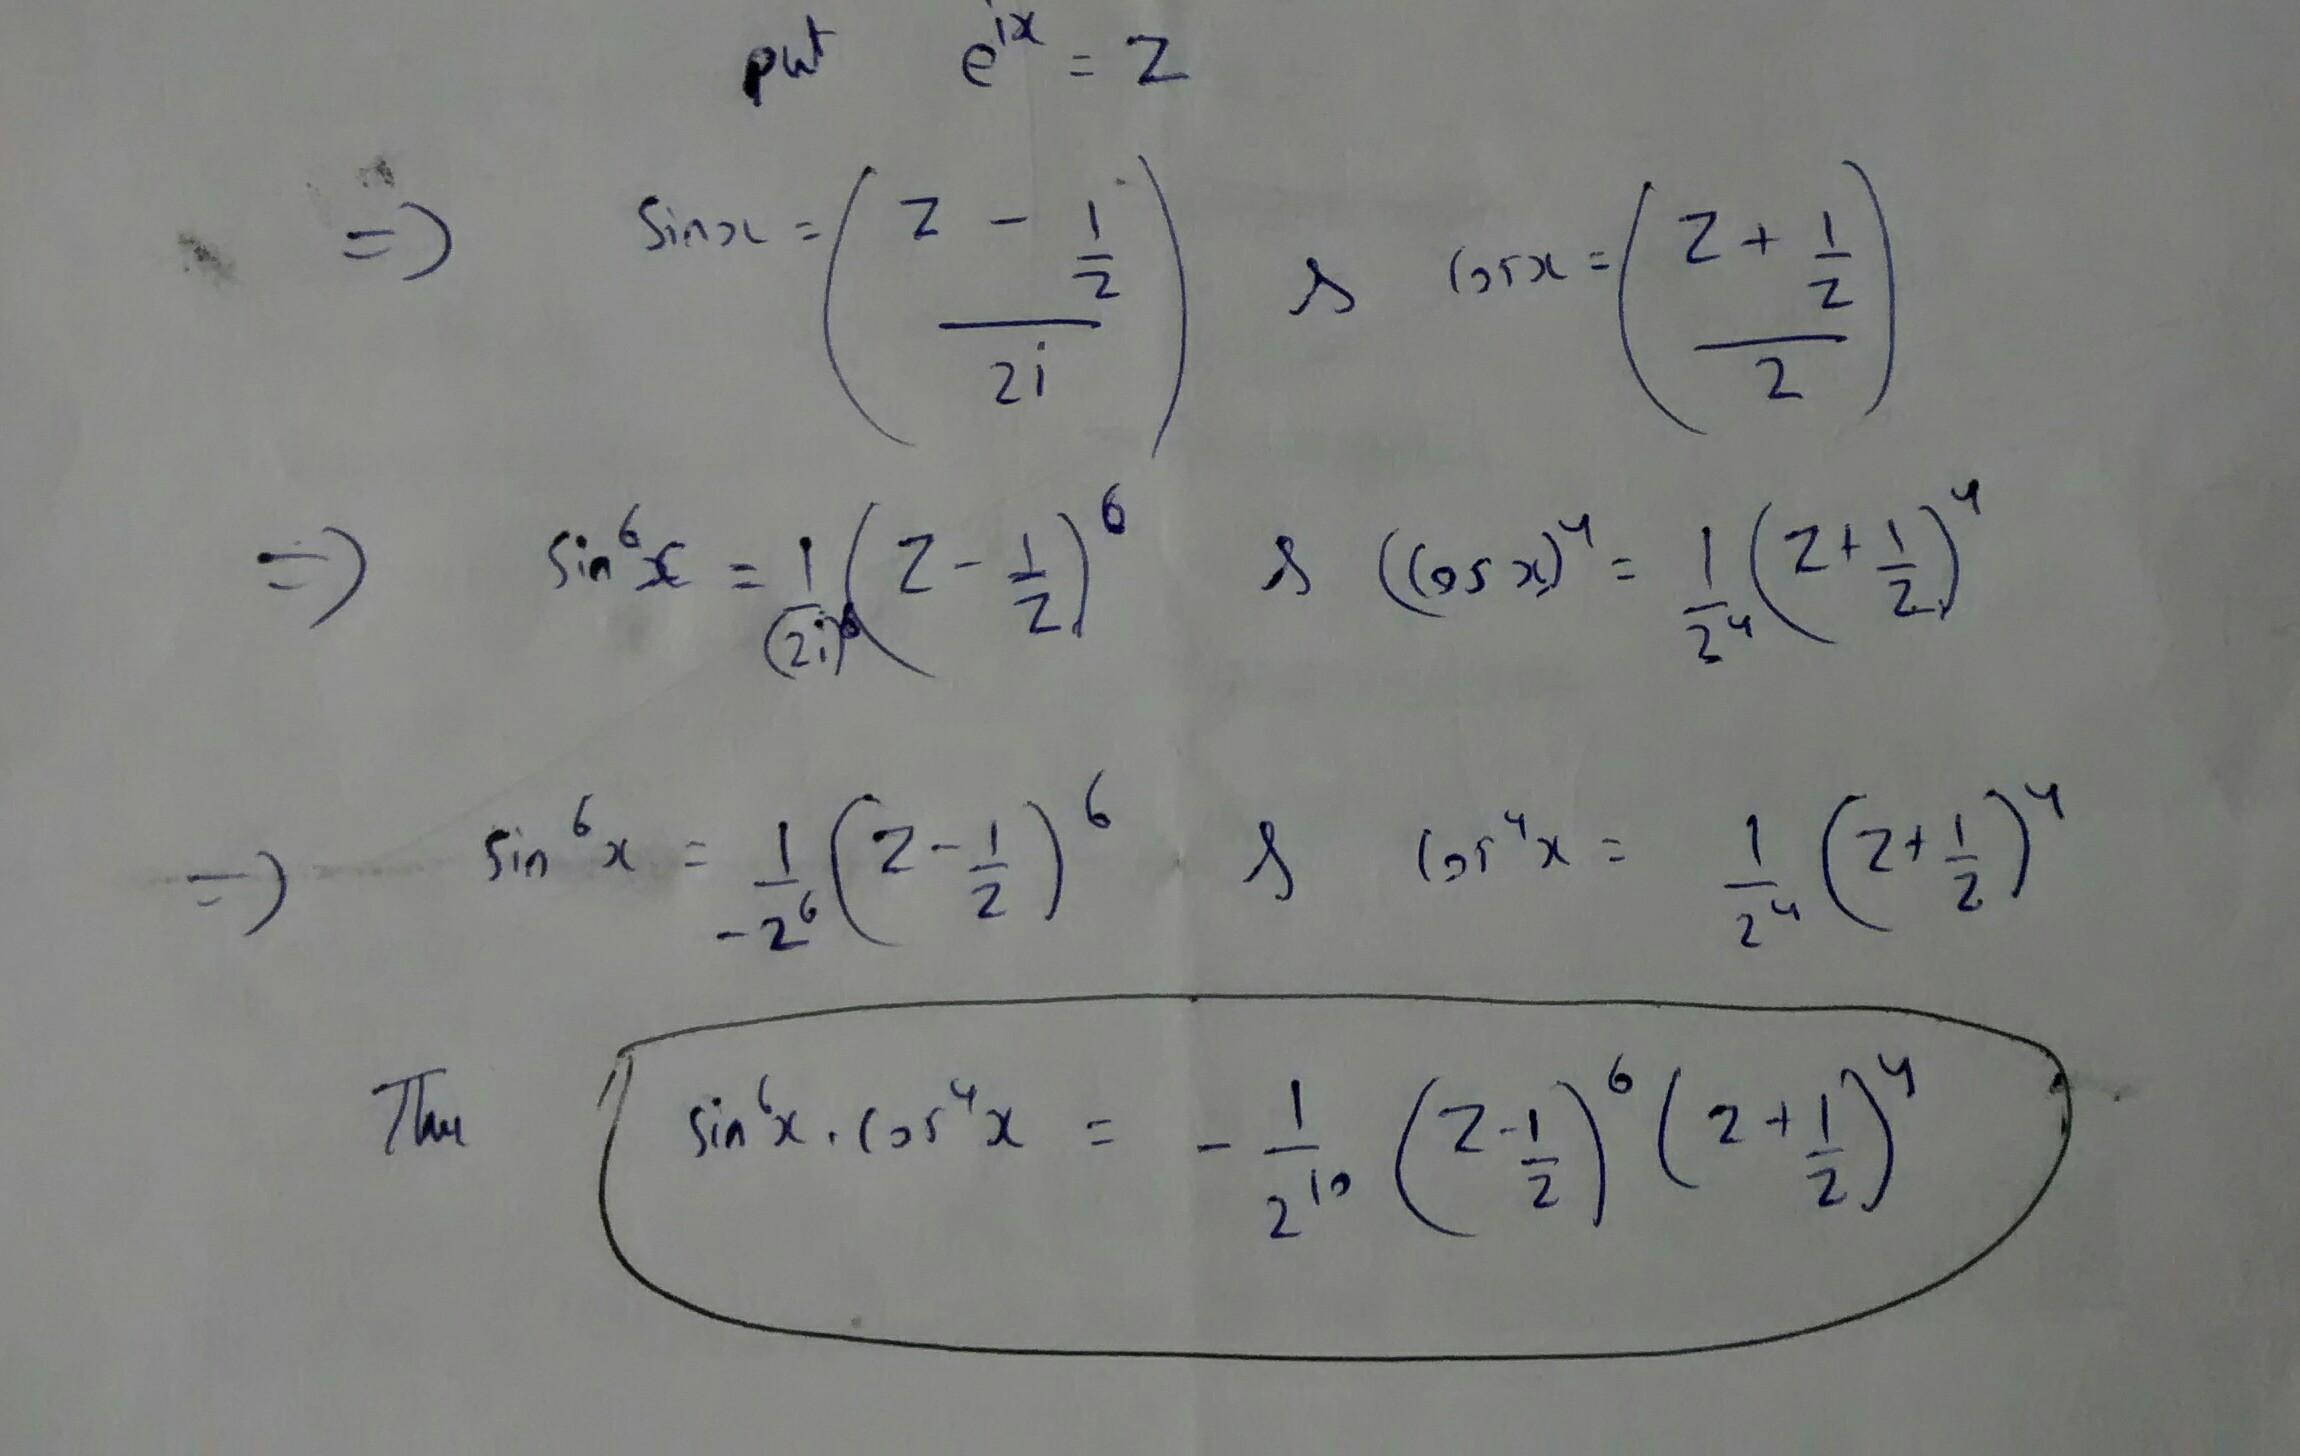 put e^{ix} = z
=) sinx = ( (z - 1/z) / 2i ) & cosx = ( (z + 1/z) / 2 )
=) sin^6 x = 1/(2i)^6 (z - 1/z)^6 & (cosx)^4 = 1/2^4 (z + 1/z)^4
=) sin^6 x = 1/-2^6 (z - 1/z)^6 & cos^4 x = 1/2^4 (z + 1/z)^4
Thus sin^6 x . cos^4 x = - 1/2^10 (z - 1/z)^6 (z + 1/z)^4